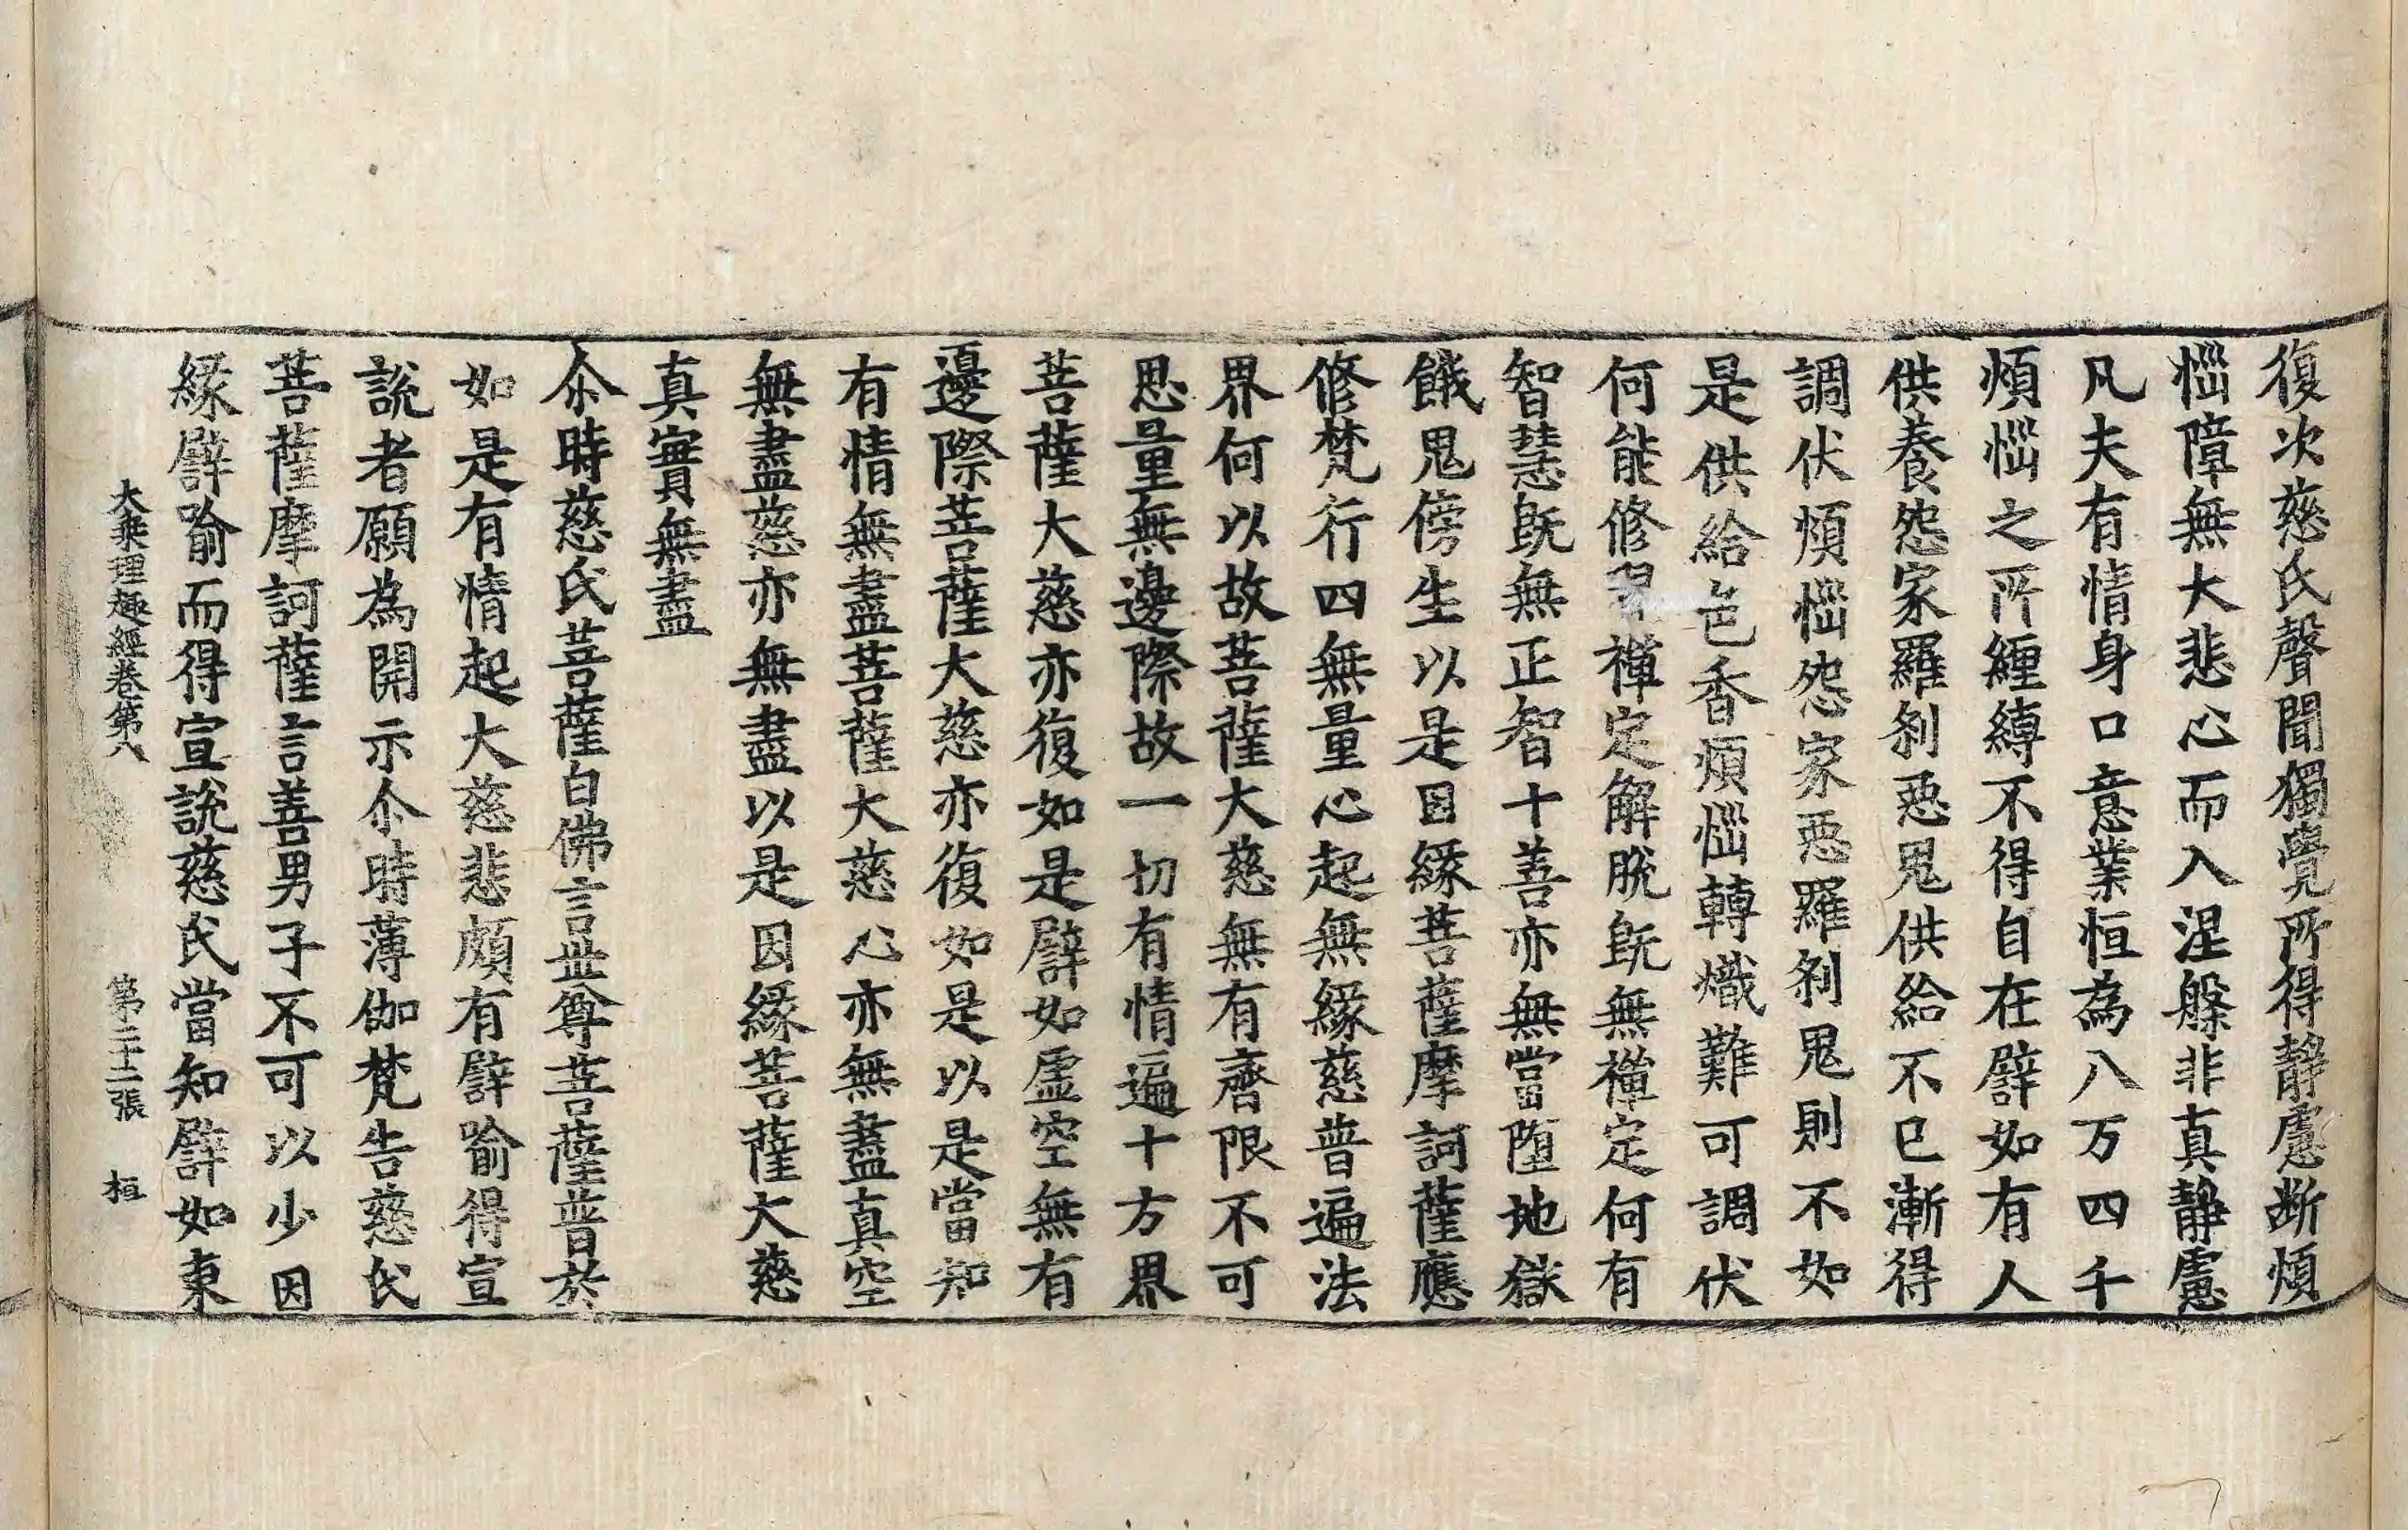 復次慈氏聲聞獨覺所得靜慮断煩
惱障無大悲心而入涅槃非真靜慮
凡夫有情身口意業恒為八万四千
煩惱之所纏縛不得自在譬如有人
供養怨家羅刹惡鬼供給不已漸得
調伏煩惱怨家惡羅刹鬼則不如
是供給色香煩惱轉熾難可調伏
何能修習禪定解脫既無禪定何有
智慧既無正智十善亦無當墮地獄
餓鬼傍生以是因緣菩薩摩訶薩應
修梵行四無量心起無緣慈普遍法
界何以故菩薩大慈無有齊限不可
思量無邊際故一切有情遍十方界
菩薩大慈亦復如是譬如虛空無有
邊際菩薩大慈亦復如是以是當知
有情無盡菩薩大慈心亦無盡真空
無盡慈亦無盡以是因緣菩薩大慈
真實無盡
尒時慈氏菩薩白佛言世尊菩薩普於
如是有情起大慈悲頗有譬喻得宣
說者願為開示尒時薄伽梵告慈氏
菩薩摩訶薩言善男子不可以少因
緣譬喻而得宣說慈氏當知譬如東
大乘理趣經卷第八　第二十二張　桓